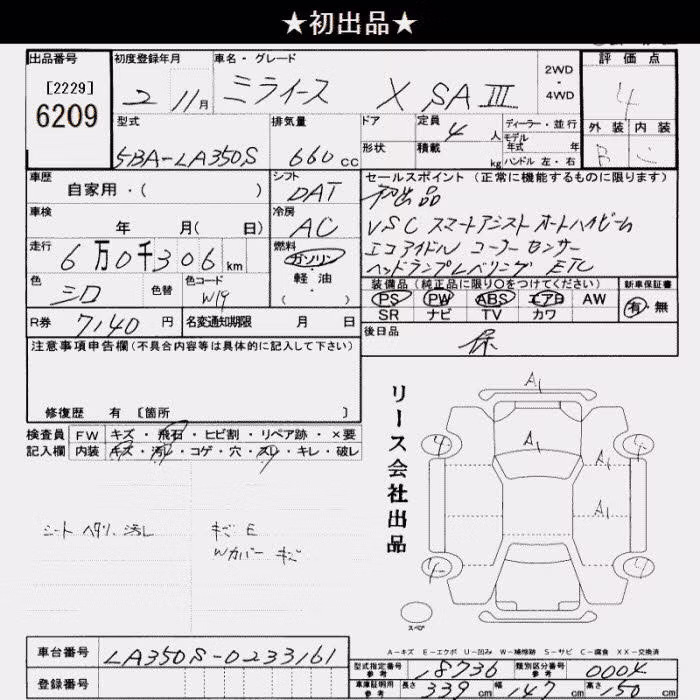 ★初出品★
出品番号 初度登録年月 車名・グレード 2WD・4WD 評価点
[2229]
6209
2 11月 ミライース X SAⅢ 4
型式 排気量 ドア 定員 4 人 ディーラー・並行 外装 内装
モデル年式 年
5BA-LA350S 660 cc 形状 積載 kg ハンドル 左・右 B C
車歴 シフト セールスポイント (正常に機能するものに限ります)
自家用・( ) DAT 初出品
車検 冷房 VSC スマートアシスト オートハイビーム
年 月( 日) AC エコアイドル コーナーセンサー
走行 燃料 ヘッドランプレベリング ETC
6万0千306km ガソリン・軽油・( )
色 色替 色コード 装備品 (純正品に限り○をつけてください) 新車保証書
シロ W19 PS PW ABS エアB AW 有・無
SR ナビ TV カワ
R券 7140円 名変通知期限 月 日 後日品
保
注意事項申告欄(不具合内容等は具体的に記入して下さい)
修復歴 有 [箇所 ]
検査員 FW キズ・飛石・ヒビ割・リペア跡・×要
記入欄 内装 キズ・汚レ・コゲ・穴・スレ・キレ・破レ
シートヘタリ、汚レ キズE
Wカバーキズ
リース会社出品
A1
4 A1 4
A1
4 4
スペア
A-キズ E-エクボ U-凹み W-補修跡 S-サビ C-腐食 XX-交換済
車台番号 LA350S-0233161
登録番号
型式指定番号 参考 18736 類別区分番号 参考 0004
車庫証明用 参考 長さ 339 cm 幅 147 cm 高さ 150 cm